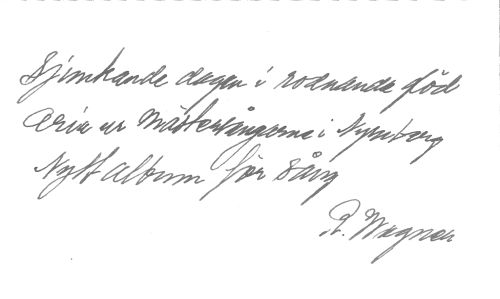 Sjimkande dagen i rodnande glöd
Aria ur Mästersångarne i Nyrnberg
Nytt album för Sång
R. Wagner